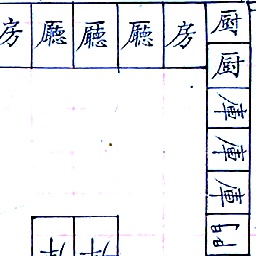 房 廳 廳 廳 房
厨
厨
庫
庫
庫